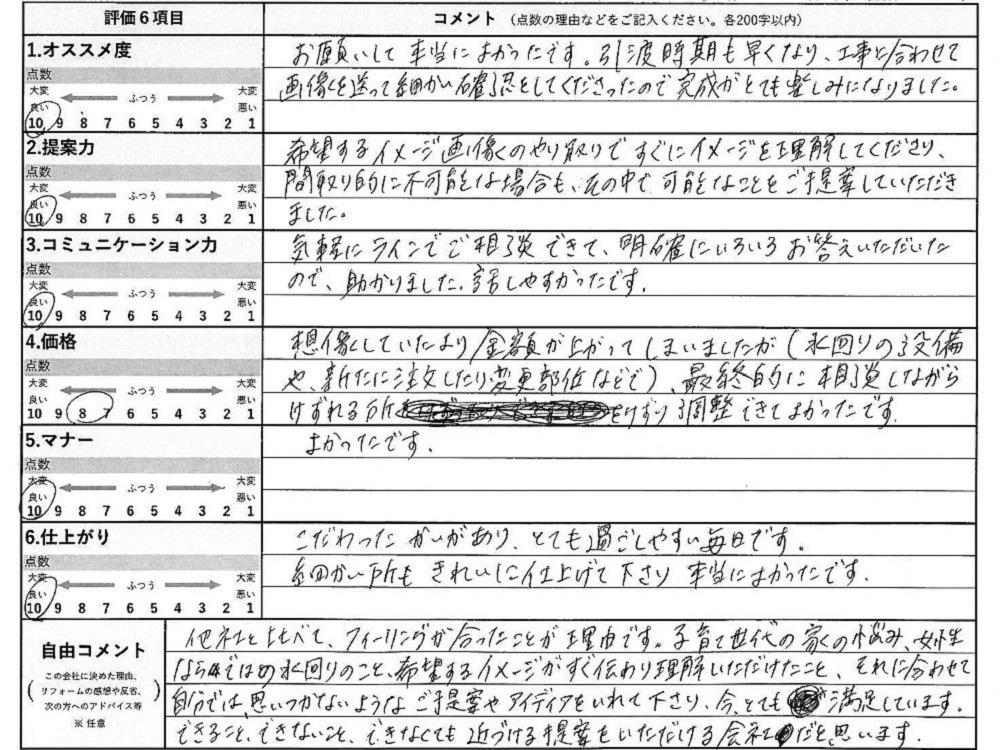 評価6項目
コメント (点数の理由などをご記入ください。各200字以内)
1.オススメ度
点数
大変良い ふつう 大変悪い
10 9 8 7 6 5 4 3 2 1
お願いして本当によかったです。引渡時期も早くなり、工事と合わせて
画像を送って細かい確認をしてくださったので完成がとても楽しみになりました。
2.提案力
点数
大変良い ふつう 大変悪い
10 9 8 7 6 5 4 3 2 1
希望するイメージ画像のやり取りですぐにイメージを理解してくださり、
間取り的に不可能な場合も、その中で可能なことをご提案していただき
ました。
3.コミュニケーション力
点数
大変良い ふつう 大変悪い
10 9 8 7 6 5 4 3 2 1
気軽にラインでご相談できて、明確にいろいろお答えいただいた
ので、助かりました。話しやすかったです。
4.価格
点数
大変良い ふつう 大変悪い
10 9 8 7 6 5 4 3 2 1
想像していたより金額が上がってしまいましたが(水回りの設備
や、新たに注文したり変更部位などで)、最終的に相談しながら
けずれる所をけずり調整できてよかったです。
5.マナー
点数
大変良い ふつう 大変悪い
10 9 8 7 6 5 4 3 2 1
よかったです。
6.仕上がり
点数
大変良い ふつう 大変悪い
10 9 8 7 6 5 4 3 2 1
こだわったかいがあり、とても過ごしやすい毎日です。
細かい所もきれいに仕上げて下さり本当によかったです。
自由コメント
(この会社に決めた理由、
リフォームの感想や反省、
次の方へのアドバイス等)
※ 任意
他社と比べて、フィーリングが合ったことが理由です。子育て世代の家の悩み、女性
ならではの水回りのこと、希望するイメージがすぐ伝わり理解いただけたこと、それに合わせて
自分では思いつかないようなご提案やアイディアをいれて下さり、今、とても満足しています。
できること、できないこと、できなくても近づける提案をいただける会社だと思います。